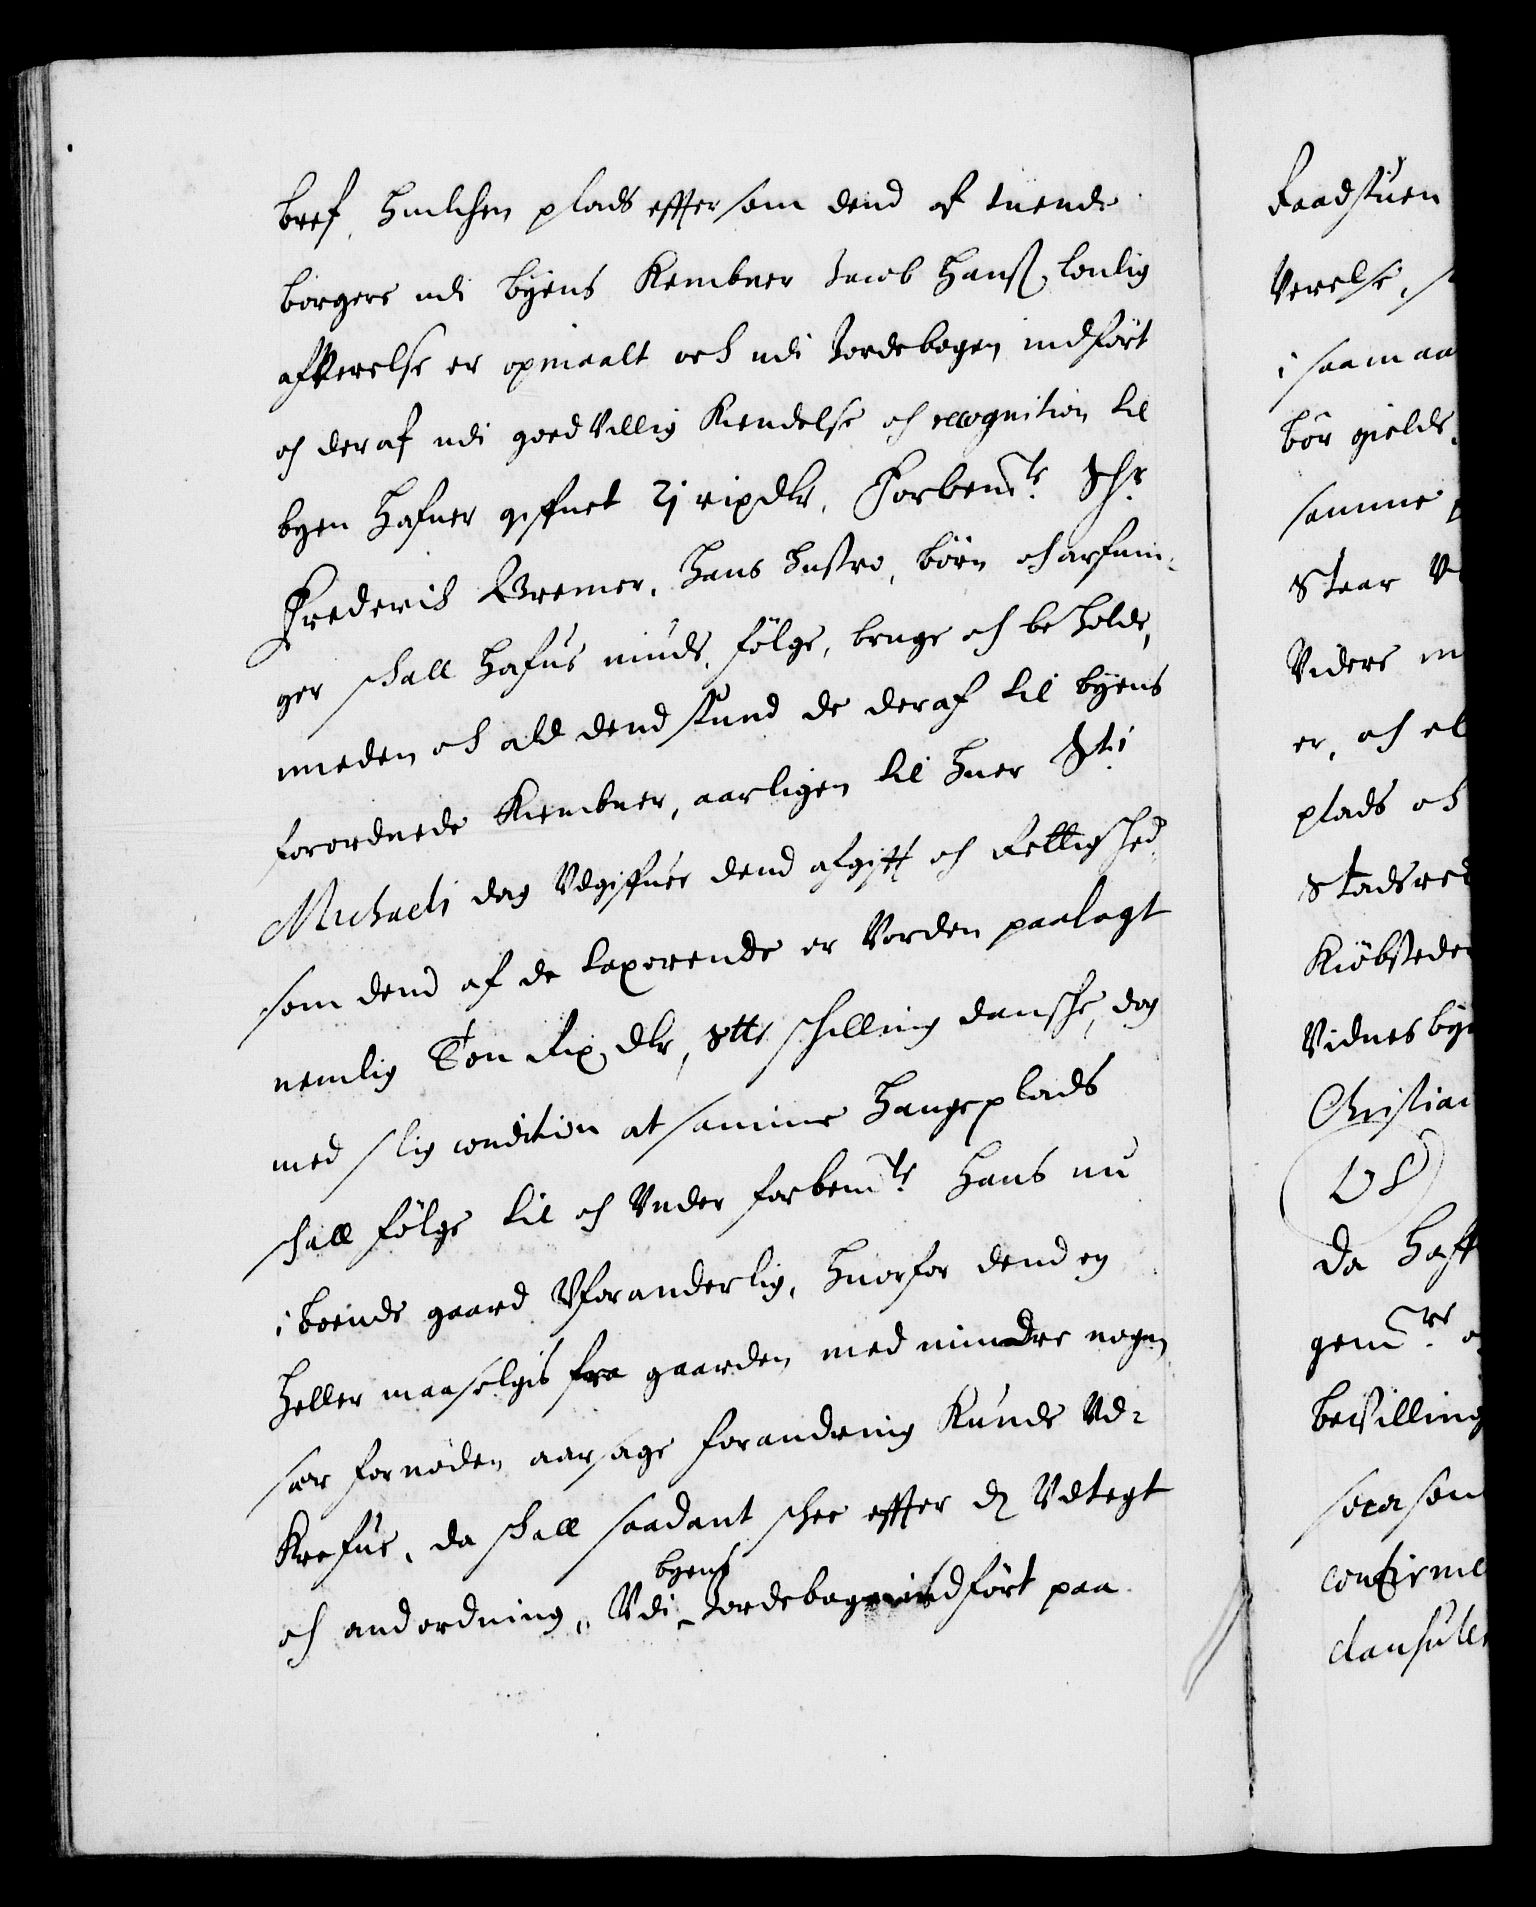 bref, huilchen plads effter som dend af tuende
borgere udi byens Kembner Jacob Hanß: lonlig
afverelse er opmaalt och udi Jordebogen indført
och deraf udi goedvillig Kiendelse och recognition til
byen hafuer gifuet 2j rixdlr, Forbemte Shr
Frederich Bremer, hans hustro, børn och arfuin-
ger schall hafue niude, følge, bruge och beholde,
meden och ald dend stund de deraf til byens
forordnede Kiembner, aarligen til huer Sti
Michaeli dag Udgifuer dend afgifft och Rettighed
som dend af de taxerende er Vorden paalagt
nemlig Een Rix dlr, otte schilling dansche, dog
med slig condition at samme hauge plads
schall følge til och Under forbemte hans nu
iboende gaard Uforanderlig, huorfor dend ey
heller maa selgis fra gaarden med mindre nogen
sær fornøden aarsage forandring Kunde Ud-
Krefue, da schall saadant schee effter dj Udtegt
och andordning, Udi byens Jordebog indført paa
Raadstuen
Verelse, s
i saa maa
bør gielde
samme p
Staar V
Videre m
er, och el
plads och
Stadsret
Kiøbsteder
Vidnesby
Christian
LS
da haff
gemte
bevilling
soversom
confirme
clausule